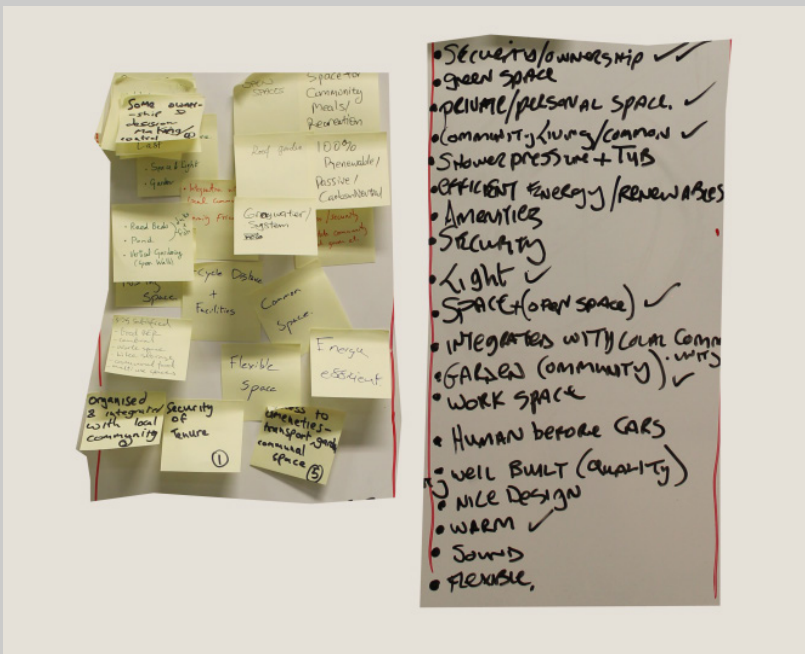 Some owner-
-ship &
decision
making/
control
Space for
Community
Meals/
Recreation
100%
Renewable/
Passive/
CarbonNeutral
Greywater/
System
• Reed Beds
• Pond
• Vertical Gardening
(Green Walls)
Space
Cycle Distance
+
Facilities
Common
Space.
Flexible
Space
Energy
efficient
organised
& integration
with local
community
Security
of
Tenure
①
to
amenities-
transport
communal
space ⑤
• SECURITY/OWNERSHIP ✓✓
• GREEN SPACE
• PRIVATE/PERSONAL SPACE. ✓
• COMMUNITY LIVING/COMMON ✓
• SHOWER PRESSURE + TUB
• EFFICIENT ENERGY/RENEWABLES
• AMENITIES
• SECURITY
• LIGHT ✓
• SPACE+(OPEN SPACE) ✓
• INTEGRATED WITH LOCAL COMM
UNITY
• GARDEN (COMMUNITY) ✓
• WORK SPACE
• HUMAN before CARS
• WELL BUILT (QUALITY)
• NICE DESIGN
• WARM ✓
• SOUND
• FLEXIBLE.